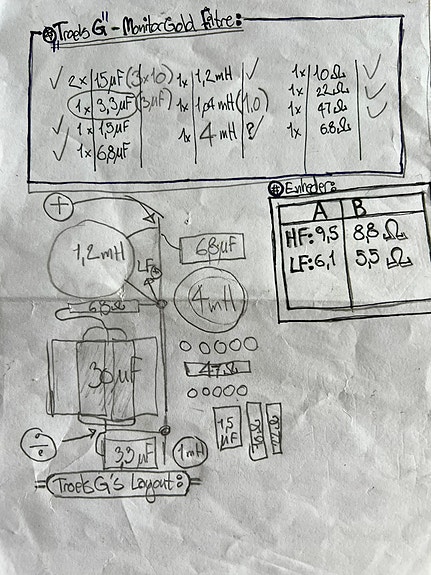 Troels G" - Monitor Gold Filtre:
2x 15µF (3x10) 1x 1,2mH 1x 10Ω
1x 3,3µF (3µF) 1x 1,04mH (1,0) 1x 22Ω
1x 1,5µF 1x 4mH ? 1x 47Ω
1x 68µF 1x 68Ω
Enheder:
A B
HF: 9,5 8,8 Ω
LF: 6,1 5,5 Ω
+
1,2mH
LF
68µF
4mH
6,8Ω
30µF
47Ω
1,5µF
3,3µF
1mH
Troels G's Layout: